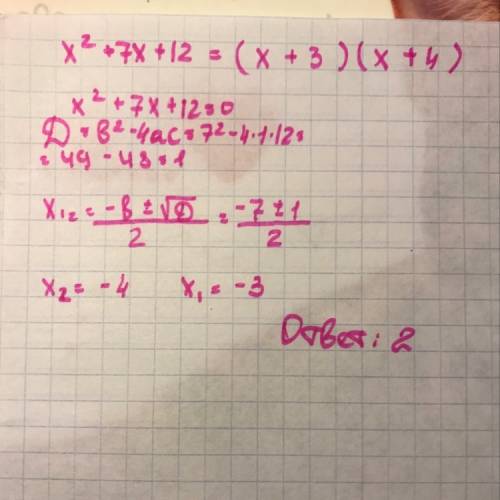 x² + 7x + 12 = (x + 3)(x + 4)
x² + 7x + 12 = 0
D = b² - 4ac = 7² - 4·1·12 =
= 49 - 48 = 1
x₁₂ = (-b ± √D)/2 = (-7 ± 1)/2
x₂ = -4 x₁ = -3
Ответ: 2